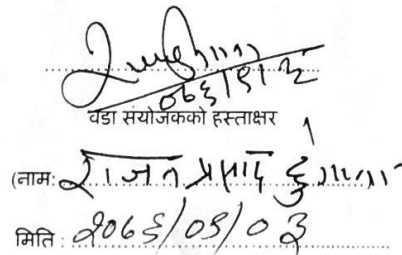 ०७६/९/३
वडा संयोजकको हस्ताक्षर
(नाम: राजन प्रसाद
मिति : २०७६/०९/०३